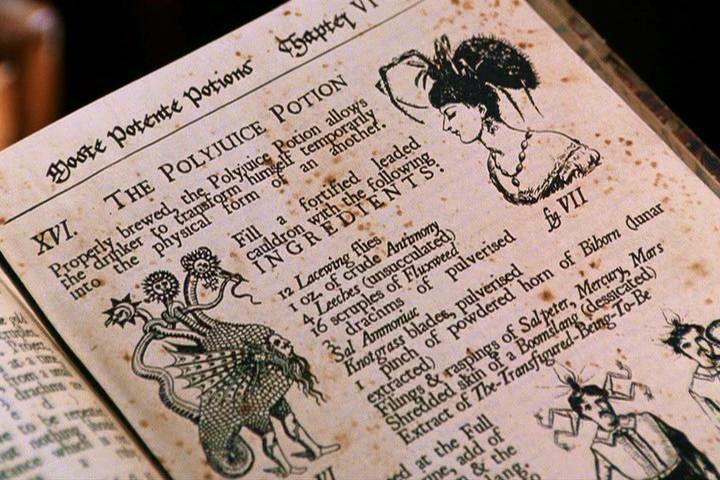 Moste Potente Potions Chapter VI
XVI. THE POLYJUICE POTION
Properly brewed, the Polyjuice Potion allows
the drinker to transform himself temporarily
into the physical form of an another.
Fill a fortified leaded
cauldron with the following
INGREDIENTS:
12 Lacewing flies
1 oz. of crude Antimony
4 Leeches (unsucculated)
16 scruples of Fluxweed
3 drachms of pulverised
Sal Ammoniac
Knotgrass blades, pulverised
1 pinch of powdered horn of Bihorn (lunar
extracted)
Filings & raspings of Salpeter, Mercury, Mars
Shredded skin of a Boomslang (dessicated)
Extract of The-Transfigured-Being-To-Be
fig VII
VI
at the Full
add of
& the
at a time
from a
drachms
to be
not nothing